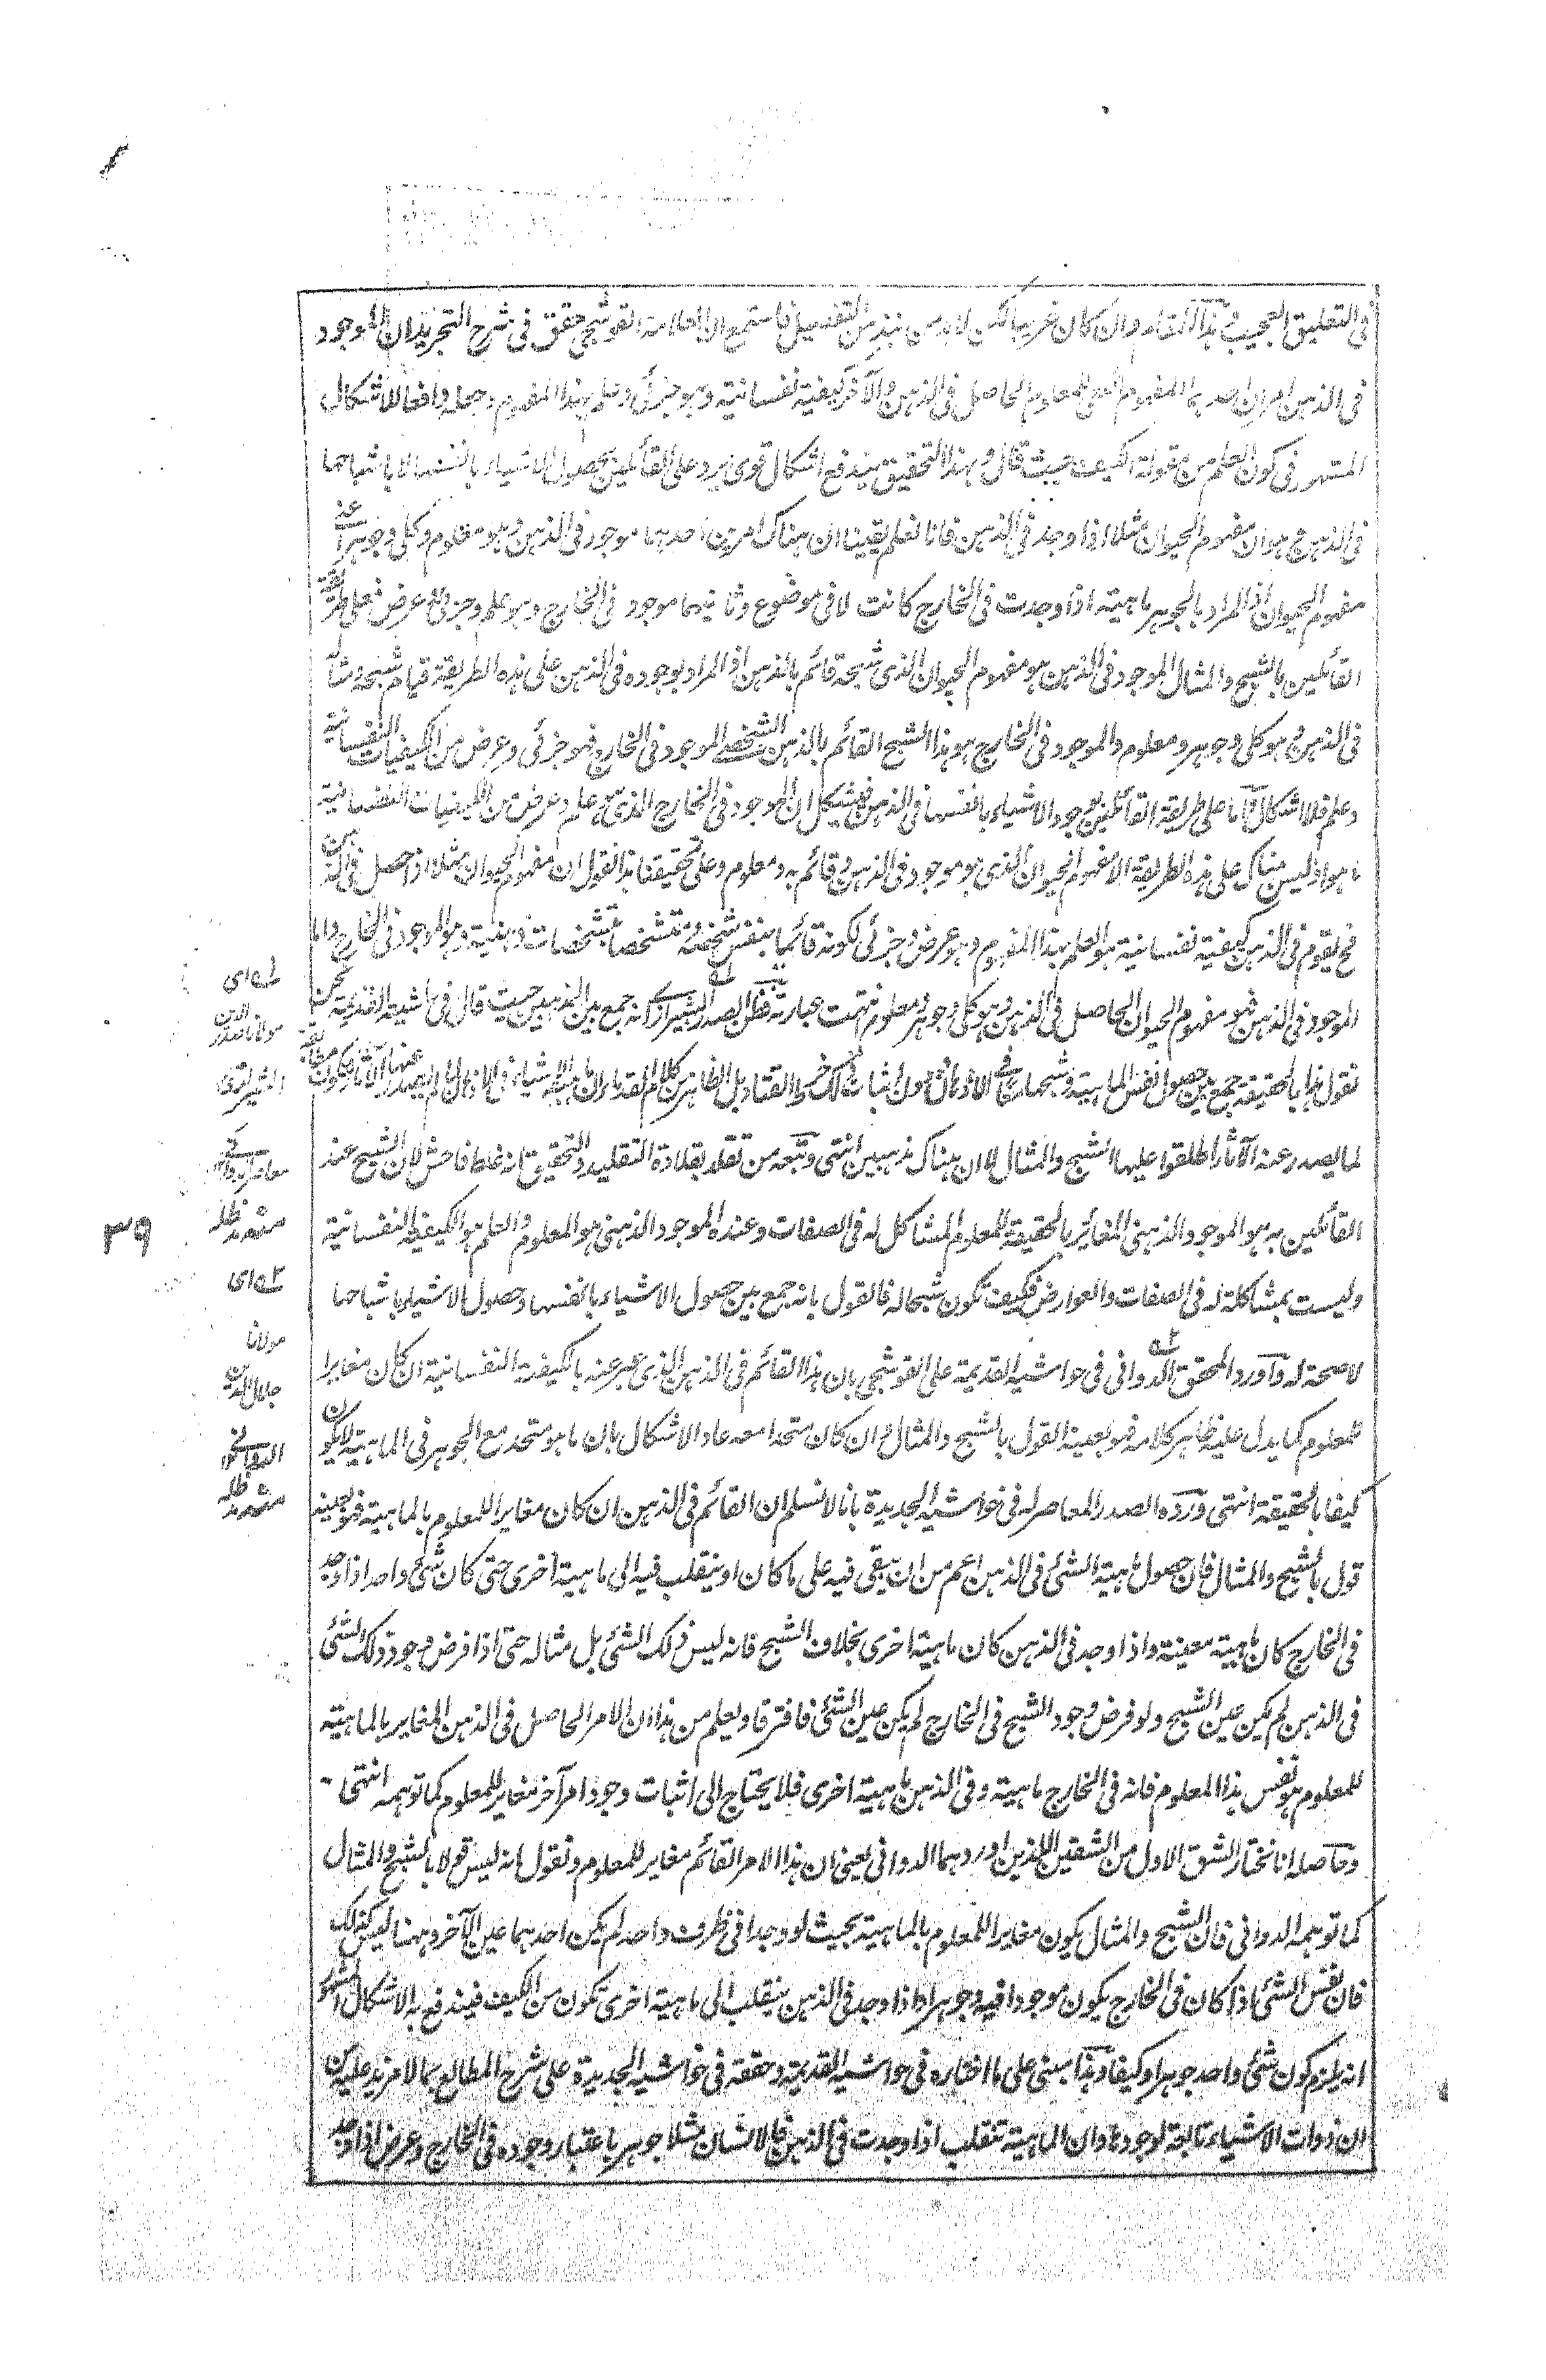 في التعليق العجيب وهذا المقام وان كان غريبا لكن لا بد من نبذ من التفصيل فاستمع ان العلامة القوشجي حقق في شرح التجريد ان الموجود
في الذهن امران احدهما المفهوم الكلي المعلوم الحاصل في الذهن والآخر كيفية نفسانية وهو جزئي وعلم بهذا المفهوم وجعله دافعا للاشكال
المشهور في كون العلم من مقولة الكيف حيث قال وبهذا التحقيق يندفع اشكال قوي يرد على القائلين بحصول الاشياء بانفسها لا باشباحها
في الذهن وهو ان مفهوم الحيوان مثلا اذا وجد في الذهن فانا نعلم يقينا ان هناك امرين احدهما موجود في الذهن وهو معلوم وكلي وجوهر اعني
مفهوم الحيوان اذ المراد بالجوهر ماهية اذا وجدت في الخارج كانت لا في موضوع وثانيهما موجود في الخارج وهو علم وجزئي وعرض فعلى طريقة
القائلين بالشبح والمثال الموجود في الذهن هو مفهوم الحيوان الذي شبحه قائم بالذهن اذ المراد بوجوده في الذهن على هذه الطريقة قيام شبحه ومثاله
في الذهن وهو كلي وجوهر ومعلوم والموجود في الخارج هو هذا الشبح القائم بالذهن الشخصي الموجود في الخارج فهو جزئي وعرض من الكيفيات النفسانية
وعلم فلا اشكال واما على طريقة القائلين بوجود الاشياء بانفسها في الذهن فيشكل ان الموجود في الخارج الذي هو علم وعرض من الكيفيات النفسانية
ما هو اذ ليس هناك على هذه الطريقة الا مفهوم الحيوان الذي هو موجود في الذهن وقائم به ومعلوم وعلى تحقيقنا هذا نقول ان مفهوم الحيوان مثلا اذا حصل في الذهن
فح يقوم في الذهن كيفية نفسانية هو العلم بهذا المفهوم وهو عرض وجزئي لكونه قائما بنفس شخصية ومتشخصا بتشخصات ذهنية وهو الموجود في الخارج واما
الموجود في الذهن فهو مفهوم الحيوان الحاصل في الذهن وهو كلي وجوهر ومعلوم انتهت عبارته فظن الصدر الشيرازي انه جمع بين المذهبين حيث قال في حاشيته القديمة نحن
نقول هذا بالحقيقة جمع بين حصول نفس الماهية وشبحها في الاذهان ودون اثبات ذلك خرط القتاد بل الظاهر من كلام القدماء ان ماهية الاشياء في الاذهان لما لم يصدر عنها الآثار
لما يصدر عنه الآثار اطلقوا عليها الشبح والمثال لا ان هناك مذهبين انتهى وتبعه من تقلد بقلادة التقليد والتحقيق انه غلط فاحش لان الشبح عند
القائلين به هو الموجود الذهني المغائر بالحقيقة للمعلوم المشاكل له في الصفات وعنده الموجود الذهني هو المعلوم والعلم هو الكيفية النفسانية
وليست بمشاكلة له في الصفات والعوارض فكيف تكون شبحا له فالقول بانه جمع بين حصول الاشياء بانفسها وحصول الاشياء باشباحها
لا صحة له وآورد المحقق الدواني في حواشيه القديمة على القوشجي بان هذا القائم في الذهن الذي عبر عنه بالكيفية النفسانية ان كان مغايرا
للمعلوم كما يدل عليه ظاهر كلامه فهو بعينه القول بالشبح والمثال وان كان متحدا معه عاد الاشكال بان ما هو متحد مع الجوهر في الماهية لا يكون
كيفا بالحقيقة انتهى ورده الصدر المعاصر له في حواشيه الجديدة بانا لا نسلم ان القائم في الذهن ان كان مغايرا للمعلوم بالماهية فهو بعينه
قول بالشبح والمثال فان حصول ماهية الشئ في الذهن اعم من ان يبقى فيه على ما كان او ينقلب فيه الى ماهية اخرى حتى كان شئ واحد اذا وجد
في الخارج كان ماهية معينة واذا وجد في الذهن كان ماهية اخرى بخلاف الشبح فانه ليس ذلك الشئ بل مثاله حتى اذا فرض وجود ذلك الشئ
في الذهن لم يكن عين الشبح ولو فرض وجود الشبح في الخارج لم يكن عين الشئ فافترقا ويعلم من هذا ان الامر الحاصل في الذهن المغاير بالماهية
للمعلوم هو نفس هذا المعلوم فانه في الخارج ماهية وفي الذهن ماهية اخرى فلا يحتاج الى اثبات وجود امر آخر مغاير للمعلوم كما توهمه انتهى -
وحاصله انا نختار الشق الاول من الشقين اللذين اوردهما الدواني يعني ان هذا الامر القائم مغاير للمعلوم ونقول انه ليس قولا بالشبح والمثال
كما توهمه الدواني فان الشبح والمثال يكون مغايرا للمعلوم بالماهية بحيث لو وجدا في ظرف واحد لم يكن احدهما عين الآخر وههنا ليس كذلك
فان نفس الشئ اذا كان في الخارج يكون موجودا فيه وجوهرا واذا وجد في الذهن ينقلب الى ماهية اخرى تكون من الكيف فيندفع به الاشكال المشهور
انه يلزم كون شئ واحد جوهرا وكيفا وهذا مبني على ما اختاره في حواشيه القديمة وحققه في حواشيه الجديدة على شرح المطالع بما لا مزيد عليه من
ان ذوات الاشياء تابعة لوجودها وان الماهية تنقلب اذا وجدت في الذهن فالانسان مثلا جوهر باعتبار وجوده في الخارج وعرض اذا وجد
له اي
مولانا صدر الدين
الشيرازي
معاصر الدواني
منه مد ظله
٣٩
٢ه اي
مولانا
جلال الدين
الدواني
منه مد ظله